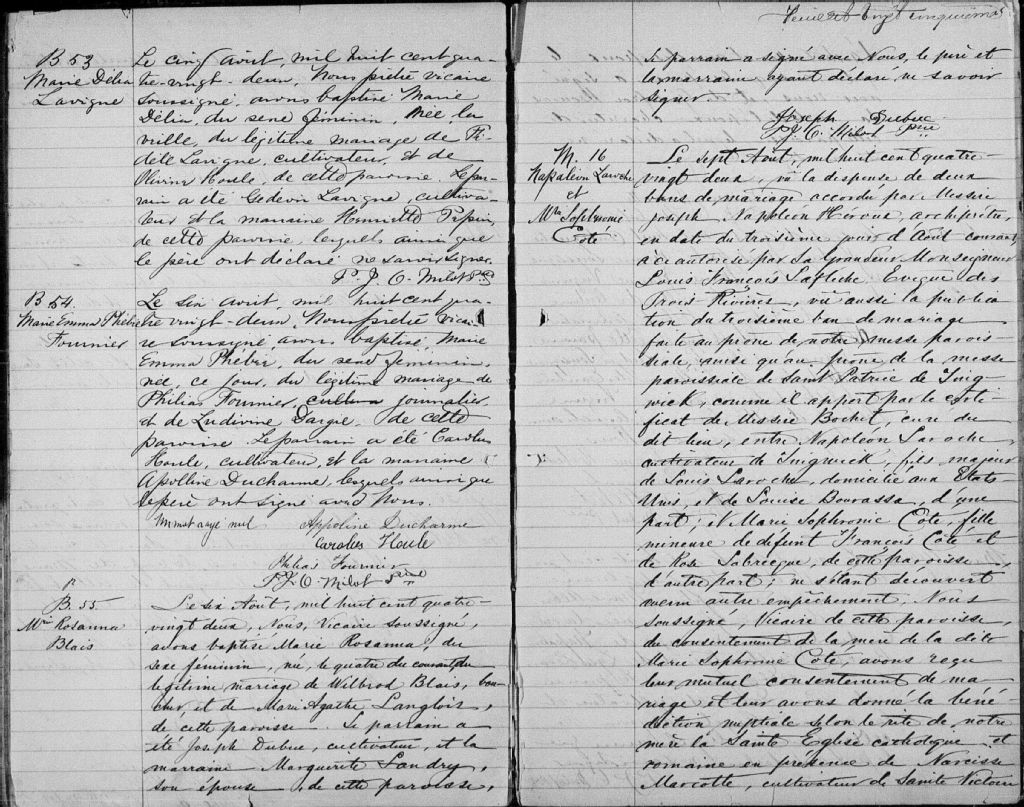 B 53
Marie Délia
Lavigne
Le cinq Août, mil huit cent qua-
tre-vingt-deux, Nous prêtre vicaire
soussigné, avons baptisé Marie
Délia, du sexe féminin, née la
veille, du légitime mariage de Fi
dèle Lavigne, cultivateur, et de
Olivine Houle, de cette paroisse. Le par-
rain a été Gédéon Lavigne, cultiva-
teur et la marraine Henriette Pepin,
de cette paroisse, lesquels ainsi que
le père ont déclaré ne savoir signer.
P. J. O. Milot Ptre
B 54
Marie Emma Phébée
Fournier
Le six Août, mil huit cent qua-
tre vingt-deux, Nous prêtre vicai
re soussigné avons baptisé, Marie
Emma Phébée, du sexe féminin,
née, ce jour, du légitime mariage de
Philias Fournier, journalier
et de Ludivine Dargie de cette
paroisse. Le parrain a été Carolus
Houle, cultivateur, et la marraine
Apolline Ducharme, lesquels ainsi que
le père ont signé avec Nous.
Un mot rayé nul
Appoline Ducharme
Carolus Houle
Philias Fournier
P. J. O. Milot Ptre
B. 55
Mie Rosanna
Blais
Le six Août, mil huit cent quatre-
vingt deux, Nous, Vicaire soussigné,
avons baptisé Marie Rosanna, du
sexe féminin, née, le quatre du courant, du
légitime mariage de Wilbrod Blais,
et de Marie Agathe Langlois,
de cette paroisse. Le parrain a
été Joseph Dubuc, cultivateur, et la
marraine Marguerite Landry,
son épouse, de cette paroisse,
feuillet vingt cinquième
Le parrain a signé avec Nous, le père et
la marraine ayant déclaré, ne savoir
signer.
Joseph Dubuc
P. J. O. Milot Ptre
M. 16
Napoléon Laroche
et
Mie Sophronie
Coté
Le sept Août, mil huit cent quatre-
vingt deux, vû la dispense de deux
bans de mariage accordée par Messire
Joseph Napoléon Héroux, archiprêtre,
en date du troisième jour d'Août courant
à ce autorisé par Sa Grandeur Monseigneur
Louis François Lafleche Evêque des
Trois Rivières, vu aussi la publica
tion du troisième ban de mariage
faite au prône de notre messe parois-
siale, ainsi qu'au prône de la messe
paroissiale de Saint Patrice de Ting
wick, comme il appert par le certi-
ficat de Messire Bochet, curé du
dit lieu, entre Napoléon Laroche,
cultivateur de Tingwick, fils majeur
de Louis Laroche, domicilié aux Etats
Unis, et de Louise Bourassa, d'une
part; et Marie Sophronie Coté, fille
mineure de défunt François Coté et
de Rose Labrecque, de cette paroisse,
d'autre part; ne s'étant découvert
aucun autre empêchement, Nous
soussigné, Vicaire de cette paroisse,
du consentement de la mère de la dite
Marie Sophronie Coté, avons reçu
leur mutuel consentement de ma
riage et leur avons donné la béné
diction nuptiale selon le rite de notre
mère la Sainte Eglise catholique et
romaine en présence de Narcisse
Marcotte, cultivateur de Sainte Victoire